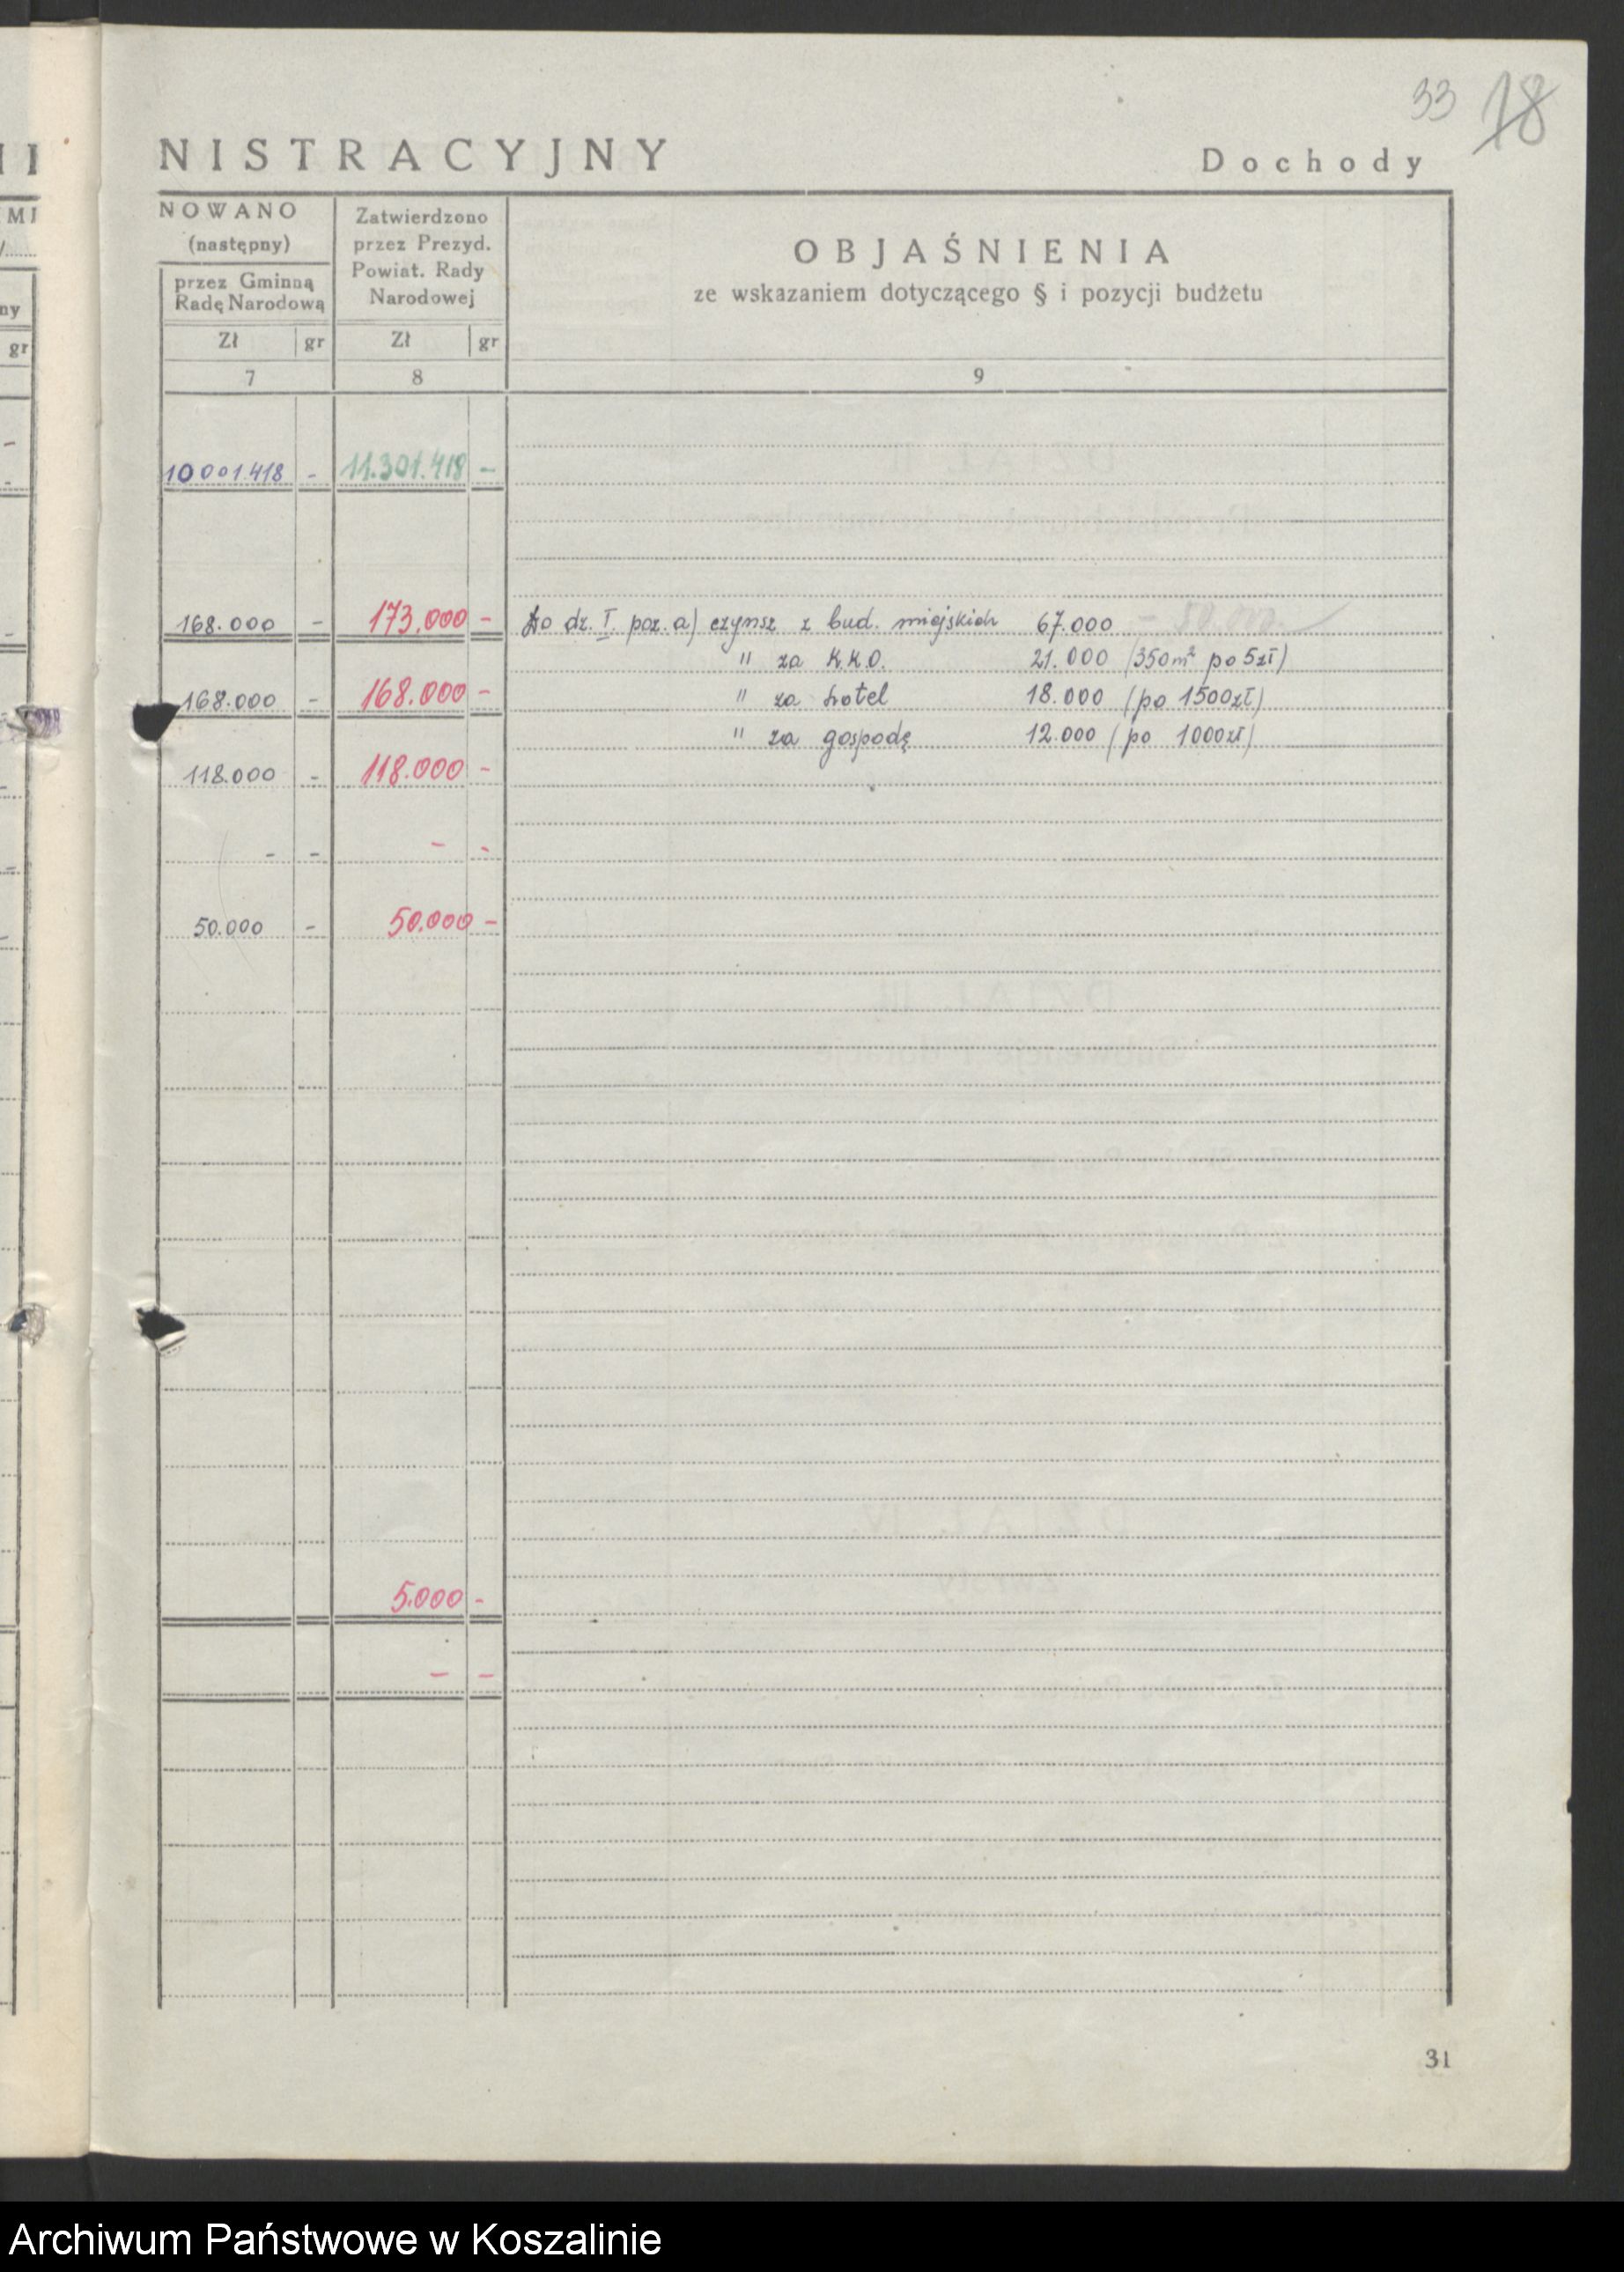 33 18
NISTRACYJNY Dochody
NOWANO
(następny)
przez Gminną
Radę Narodową
Zł gr
7
Zatwierdzono
przez Prezyd.
Powiat. Rady
Narodowej
Zł gr
8
OBJAŚNIENIA
ze wskazaniem dotyczącego § i pozycji budżetu
9
MI
ny
gr
10001.418 - 11.301.418 -
168.000 - 173.000 - Do dz. I. poz. a) czynsz z bud. miejskich 67.000 - 50.000.-
" za K.K.O. 21.000 (350m² po 5zł)
168.000 - 168.000 - " za hotel 18.000 (po 1500zł)
" za gospodę 12.000 (po 1000zł)
118.000 - 118.000 -
- - - -
50.000 - 50.000 -
5.000 -
- -
31
Archiwum Państwowe w Koszalinie